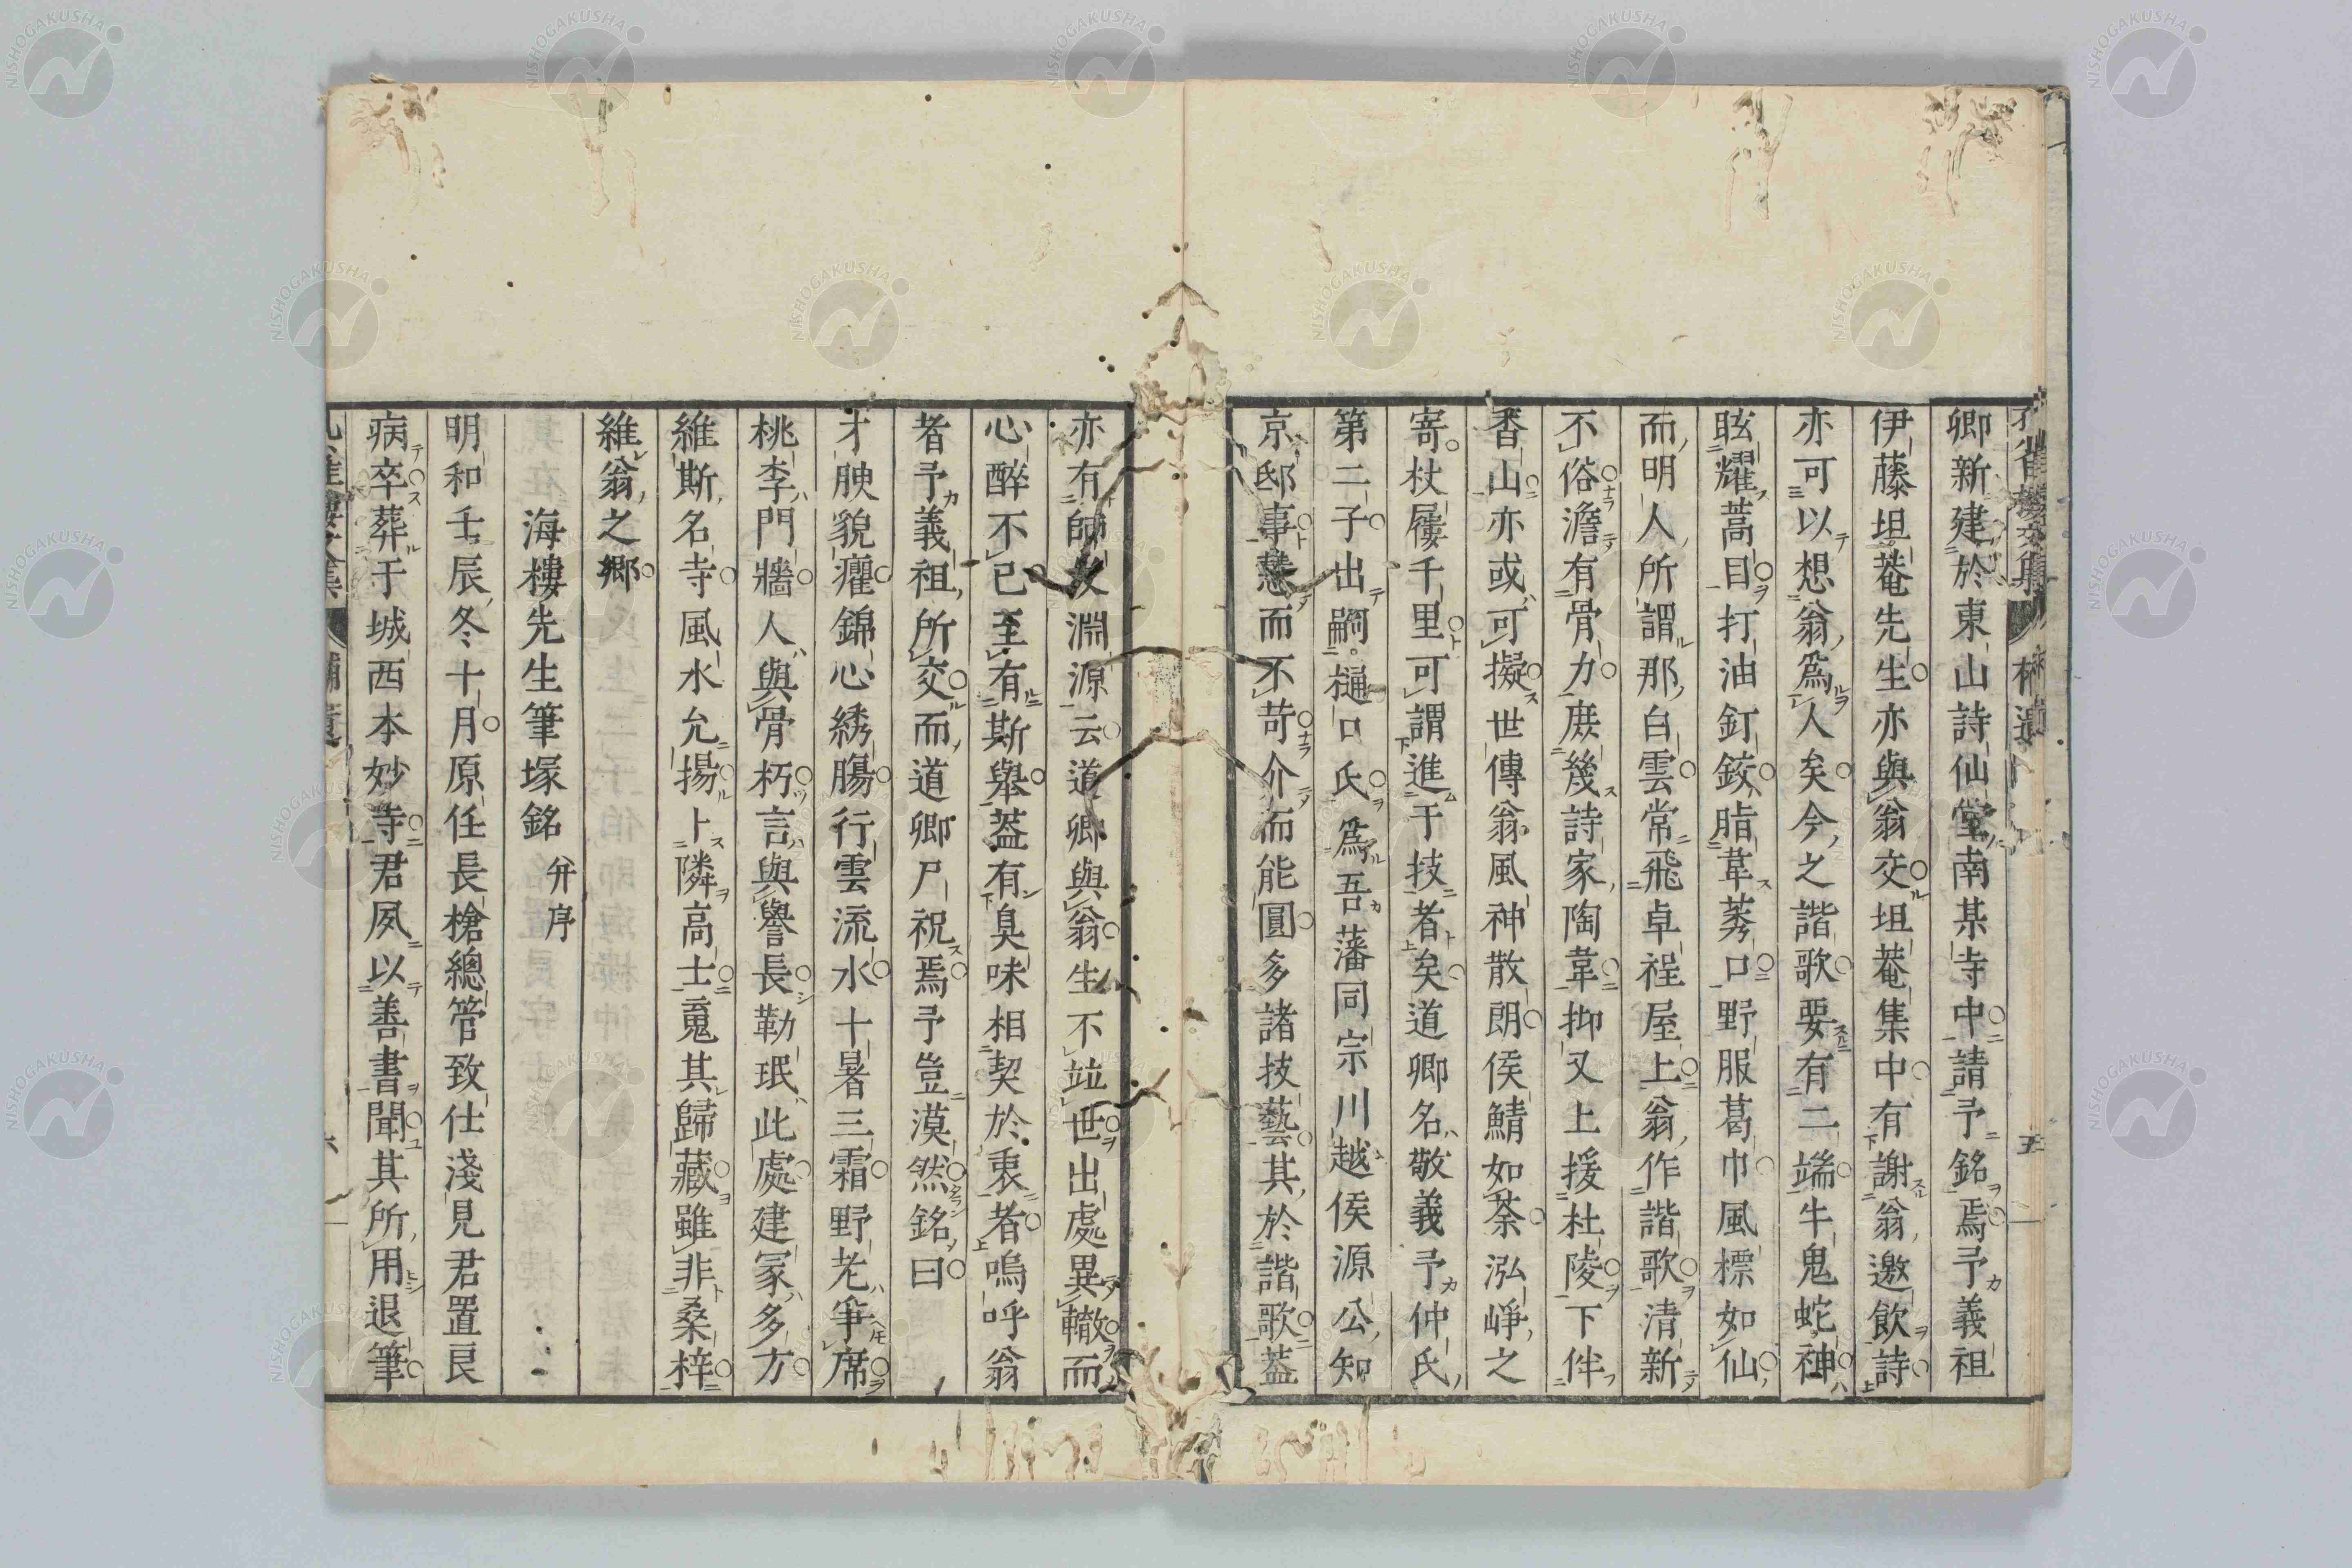 卿新建於東山詩仙堂南某寺中請予銘焉予義祖
伊藤坦菴先生亦與翁交坦菴集中有謝翁邀飲詩
亦可以想翁爲人矣今之諧歌要有二端牛鬼蛇神
眩耀蒿目打油釘鉸脂韋莠口野服葛巾風標如仙
而明人所謂那白雲常飛卓裎屋上翁作諧歌清新
不俗澹有骨力庶幾詩家陶韋抑又上援杜陵下伴
香山亦或可擬世傳翁風神散朗侯鯖如荼泓崢之
寄杖屨千里可謂進于技者矣道卿名敬義予仲氏
第二子出嗣樋口氏爲吾藩同宗川越侯源公知
京邸事慧而不苛介而能圓多諸技藝其於諧歌蓋
亦有師故淵源云道卿與翁生不竝世出處異轍而
心醉不已至有斯舉蓋有臭味相契於衷者嗚呼翁
者予義祖所交而道卿尸祝焉予豈漠然銘曰
才腴貌癯錦心綉腸行雲流水十暑三霜野老爭席
桃李門牆人與骨朽言與譽長勒珉此處建冢多方
維斯名寺風水允揚卜隣高士䰟其歸藏雖非桑梓
維翁之鄉
海樓先生筆塚銘 幷序
明和壬辰冬十月原任長槍總管致仕淺見君置良
病卒葬于城西本妙寺君夙以善書聞其所用退筆